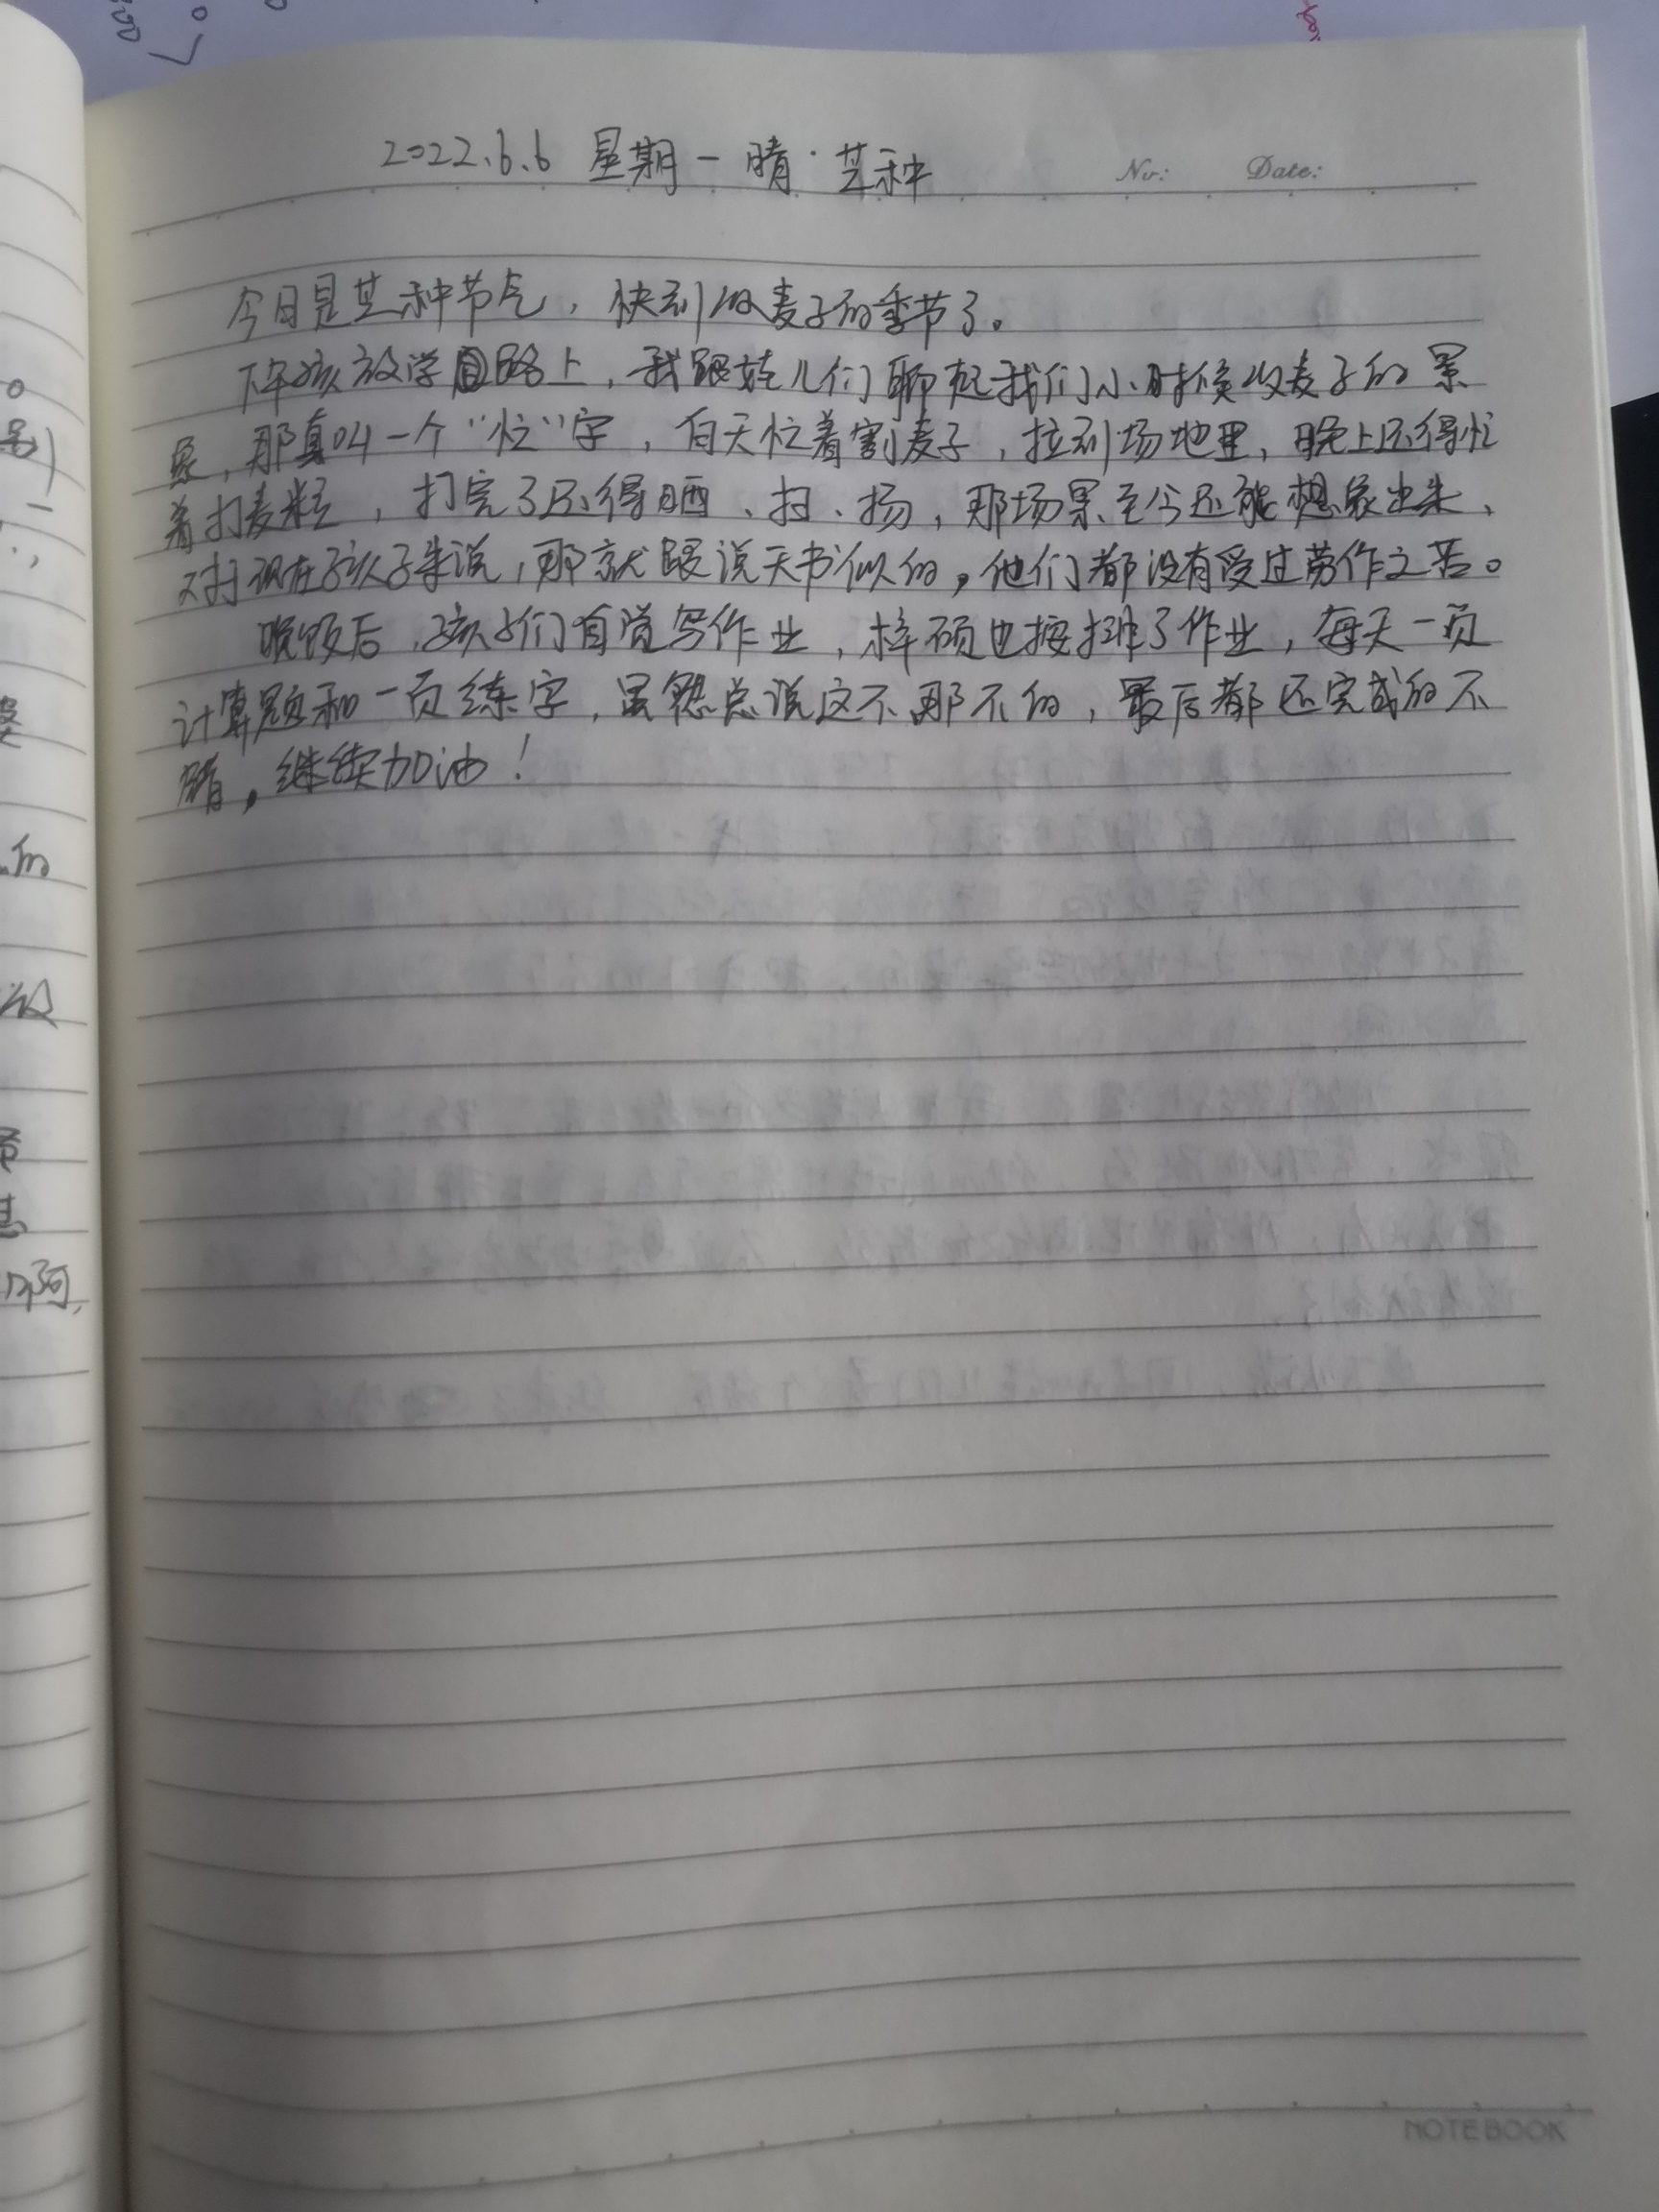 2022.6.6 星期一 晴·芒种
No: Date:
今日是芒种节气，快到收麦子的季节了。
下午孩放学回路上，我跟娃儿们聊起我们小时候收麦子的景
象，那真叫一个“忙”字，白天忙着割麦子，拉到场地里，晚上还得忙
着打麦粒，打完了还得晒、扫、扬，那场景至今还能想象出来、
对现在孩子来说，那就跟说天书似的，他们都没有受过劳作之苦。
晚饭后，孩子们自觉写作业，梓硕也按排了作业，每天一页
计算题和一页练字，虽然总说这不那不的，最后都还完成的不
错，继续加油！
NOTEBOOK